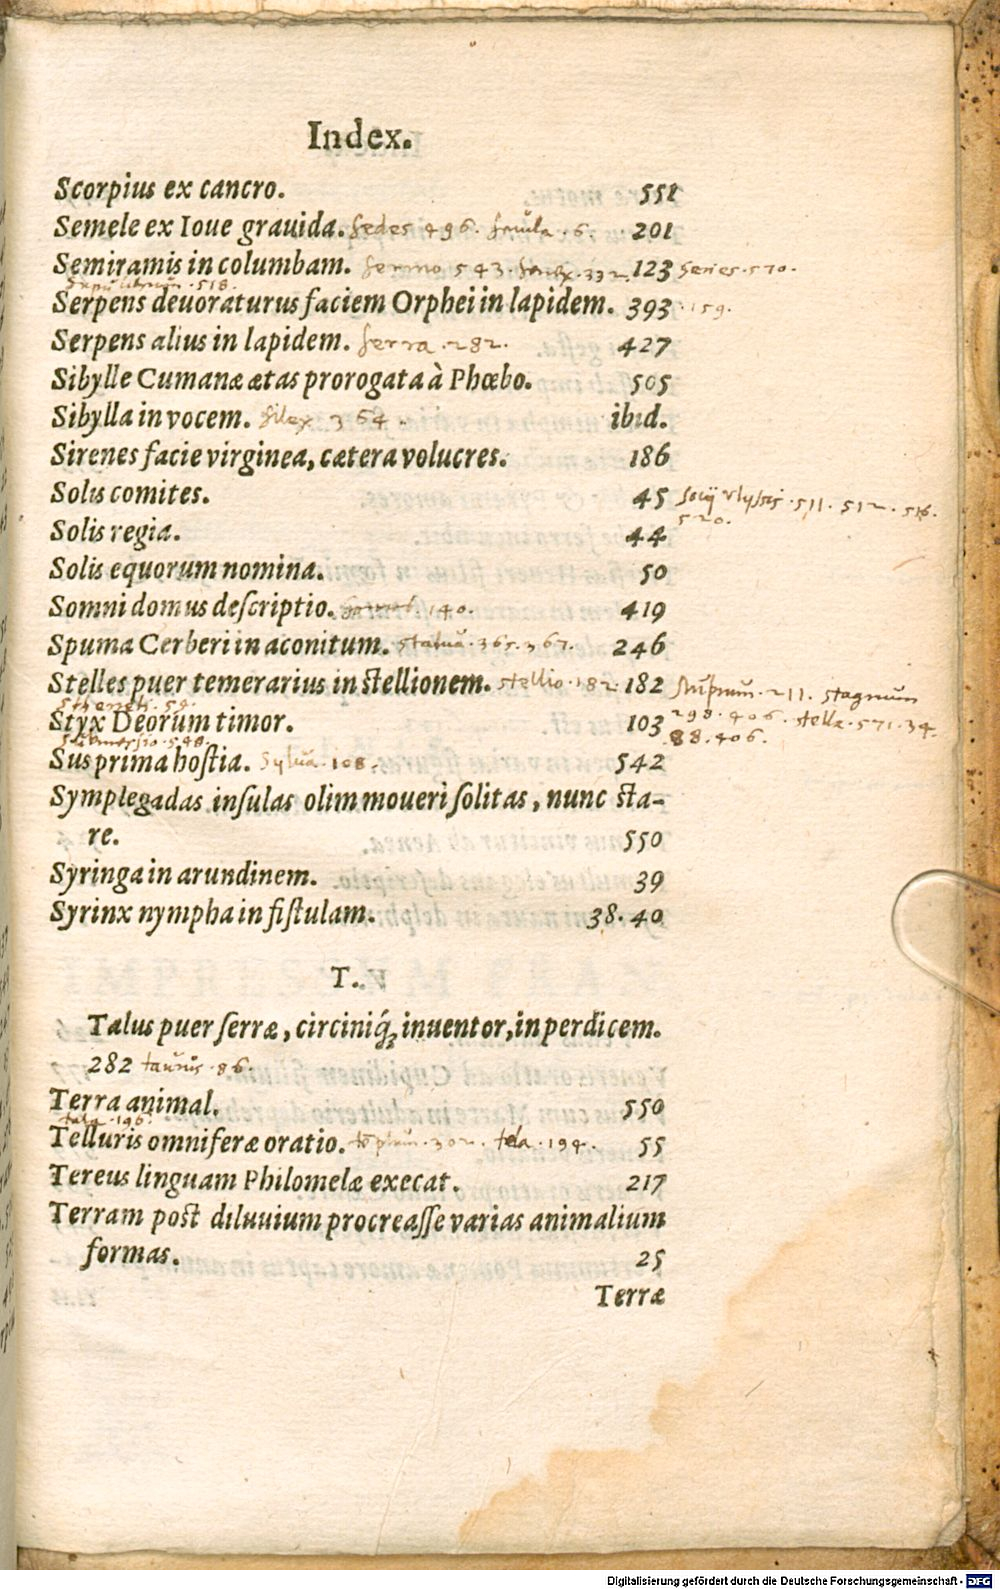 Index.
Scorpius ex cancro. 551
Semele ex Ioue grauida. sedes 496. 6. 201
Semiramis in columbam. sermo 543. 332. 123 series. 570.
518.
Serpens deuoraturus faciem Orphei in lapidem. 393 . 159.
Serpens alius in lapidem. serra . 282. 427
Sibylle Cumanæ ætas prorogata à Phœbo. 505
Sibylla in vocem. silex 354. ibid.
Sirenes facie virginea, cætera volucres. 186
Solis comites. 45 socij Vlyssis . 511. 512. 516.
520.
Solis regia. 44
Solis equorum nomina. 50
Somni domus descriptio. 140. 419
Spuma Cerberi in aconitum. statua . 365. 367. 246
Stelles puer temerarius in stellionem. stellio . 182. 182 stuprum . 211. stagnum
59.
Styx Deorum timor. 103 298. 406. stella . 571. 34.
submersio . 548. 88. 406.
Sus prima hostia. Sylua . 108. 542
Symplegadas insulas olim moueri solitas, nunc sta-
re. 550
Syringa in arundinem. 39
Syrinx nympha in fistulam. 38. 40
T.
Talus puer serræ, circiniq́; inuentor, in perdicem.
282 taurus . 86.
Terra animal. 550
tala . 196.
Telluris omniferæ oratio. 302. tela . 194. 55
Tereus linguam Philomelæ execat. 217
Terram post diluuium procreasse varias animalium
formas. 25
Terræ
Digitalisierung gefördert durch die Deutsche Forschungsgemeinschaft - DFG